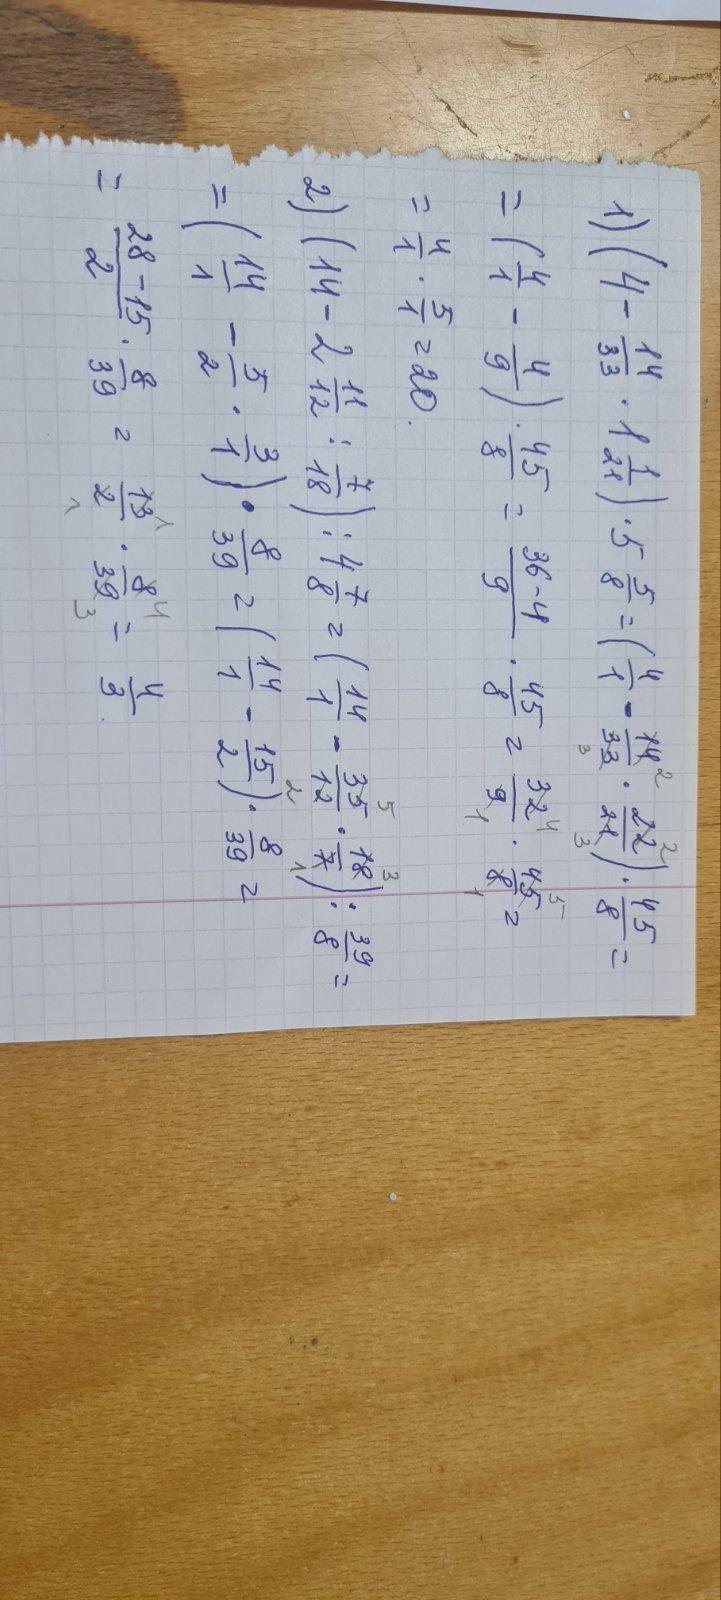 1) (4 - 14/33 · 1 1/21) · 5 5/8 = (4/1 - 14/33 · 22/21) · 45/8 =
= (4/1 - 4/9) · 45/8 = 36-4/9 · 45/8 = 32/9 · 45/8 =
= 4/1 · 5/1 = 20.
2) (14 - 2 11/12 : 7/18) : 4 7/8 = (14/1 - 35/12 · 18/7) : 39/8 =
= (14/1 - 5/2 · 3/1) · 8/39 = (14/1 - 15/2) · 8/39 =
= 28-15/2 · 8/39 = 13/2 · 8/39 = 4/3